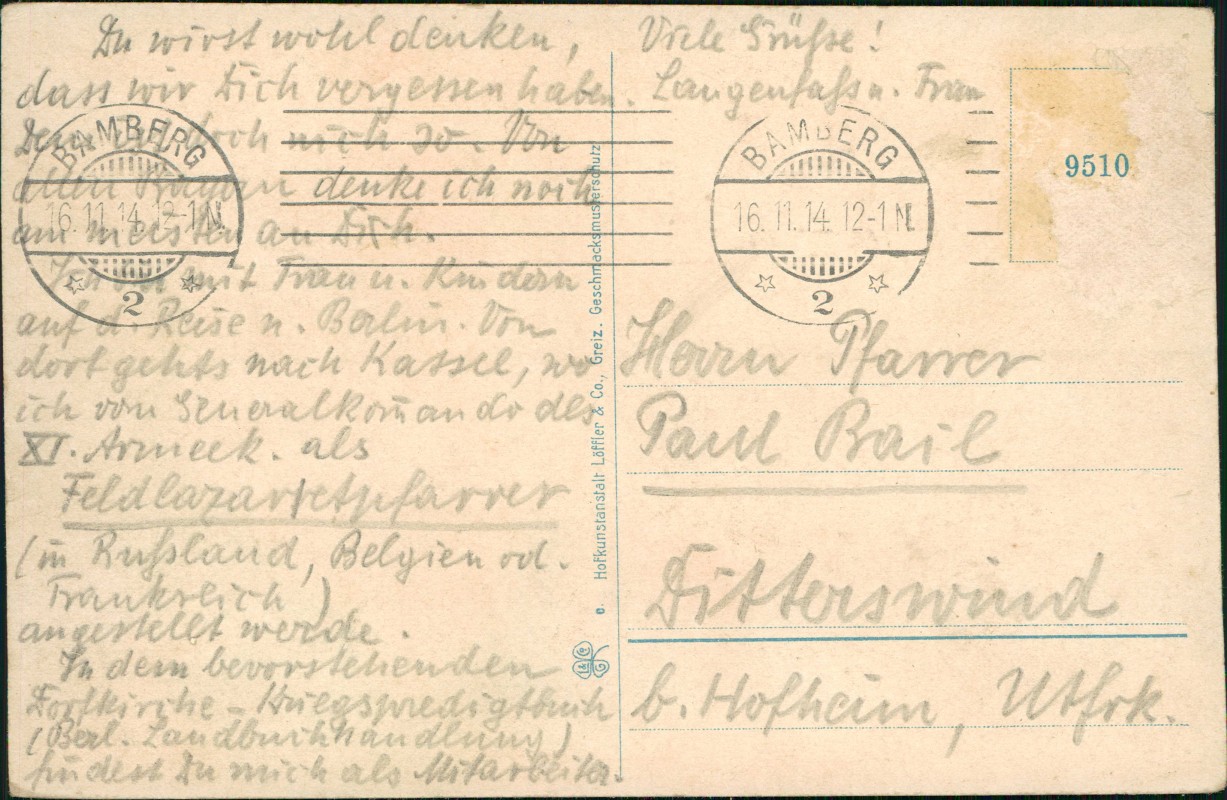 Du wirst wohl denken,
dass wir Dich vergessen haben.
doch nich so. Von
allen denke ich noch
am meisten an Dich.
Ich mit Frau u. Kindern
auf d. Reise n. Berlin. Von
dort gehts nach Kassel, wo
ich vom Generalkom̄ando des
XI. Armeek. als
Feldlazarettpfarrer
(in Rußland, Belgien od.
Frankreich)
angestellt werde.
In dem bevorstehenden
Dorfkirche-Kriegspredigtbuch
(Berl. Landbuchhandlung)
findest Du mich als Mitarbeiter.
Viele Grüße!
Langenfaß u. Frau
BAMBERG
16.11.14. 12-1 N.
2
BAMBERG
16.11.14. 12-1 N.
2
9510
Herrn Pfarrer
Paul Bail
Ditterswind
b. Hofheim, Utfrk.
e. Hofkunstanstalt Löffler & Co., Greiz. Geschmacksmusterschutz
L&Co